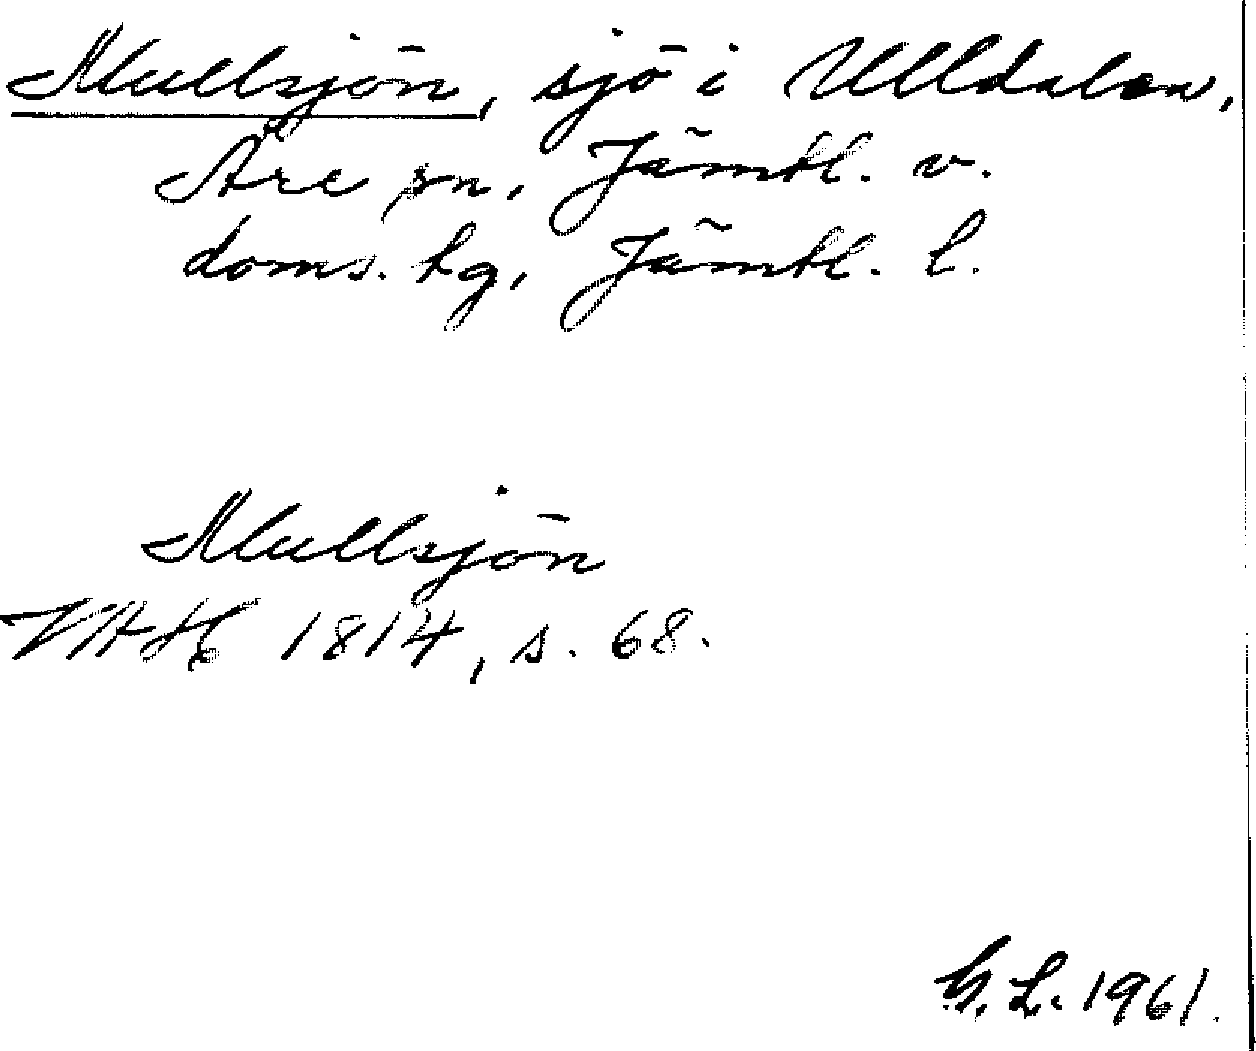 Mullsjön, sjö i Ulldalen,
Åre sn, Jämtl. v.
doms. tg, Jämtl. l.
Mullsjön
VAH 1814, s. 68.
G. L. 1961.